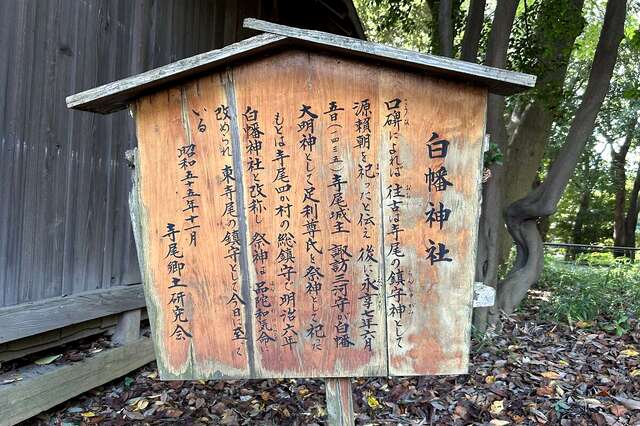 白幡神社
口碑によれば 往古は寺尾の鎮守神として
源頼朝を祀ったと伝え 後に永享七年六月
吾日(一四三五)寺尾城主 諏訪三河守が白幡
大明神として足利尊氏を祭神として祀った
もとは寺尾四か村の総鎮守で明治六年
白幡神社と改称し 祭神は 品陀和気命に
改められ 東寺尾の鎮守として今日に至って
いる
昭和五十五年十一月
寺尾郷土研究会